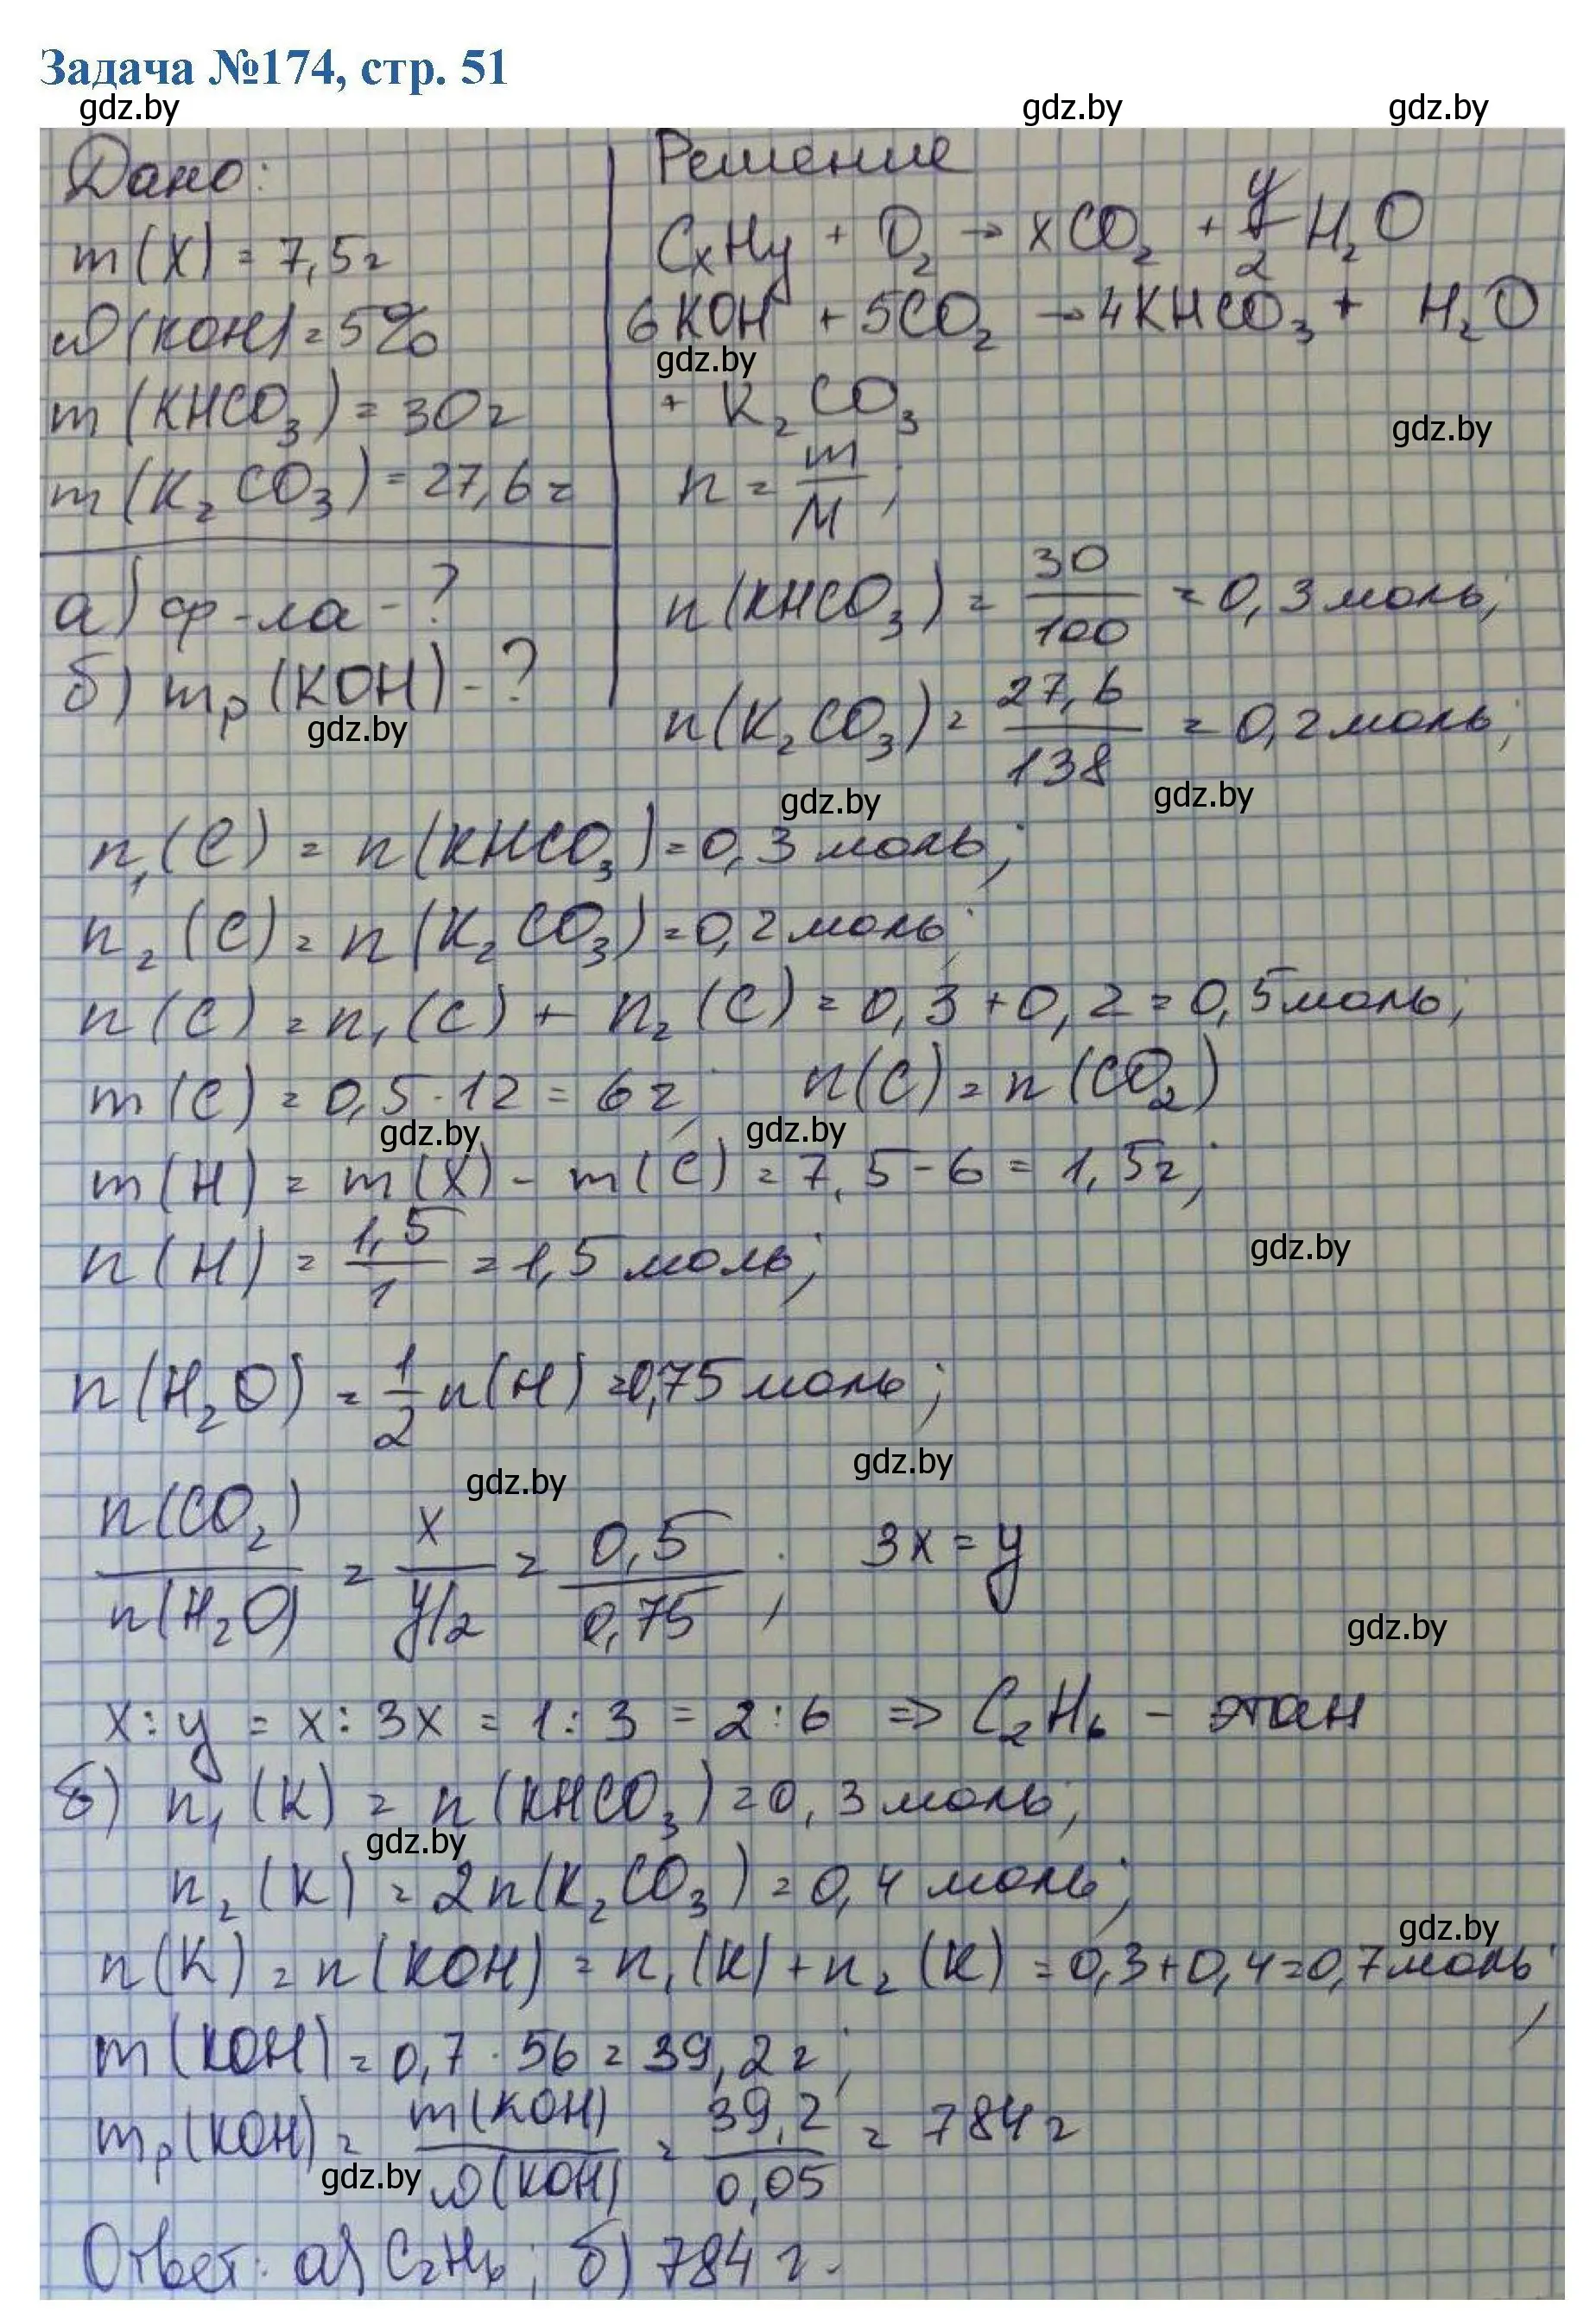 Задача №174, стр. 51
gdz.by gdz.by gdz.by
Дано:
m(X) = 7,5г
ω(KOH) = 5%
m(KHCO₃) = 30г
m(K₂CO₃) = 27,6г
а) ф-ла - ?
б) mₚ(KOH) - ?
gdz.by
Решение
CₓHᵧ + O₂ → xCO₂ + y/2 H₂O
6KOH + 5CO₂ → 4KHCO₃ + H₂O
gdz.by
+ K₂CO₃
gdz.by
n = m/M;
n(KHCO₃) = 30/100 = 0,3 моль;
n(K₂CO₃) = 27,6/138 = 0,2 моль;
gdz.by gdz.by
n₁(C) = n(KHCO₃) = 0,3 моль;
n₂(C) = n(K₂CO₃) = 0,2 моль;
n(C) = n₁(C) + n₂(C) = 0,3 + 0,2 = 0,5 моль;
m(C) = 0,5 · 12 = 6г; n(C) = n(CO₂)
gdz.by gdz.by
m(H) = m(X) - m(C) = 7,5 - 6 = 1,5г;
n(H) = 1,5/1 = 1,5 моль;
gdz.by
n(H₂O) = 1/2 n(H) = 0,75 моль;
gdz.by gdz.by
n(CO₂)/n(H₂O) = x/y/2 = 0,5/0,75; 3x = y
gdz.by
x : y = x : 3x = 1 : 3 = 2 : 6 => C₂H₆ - этан
б) n₁(K) = n(KHCO₃) = 0,3 моль;
gdz.by
n₂(K) = 2n(K₂CO₃) = 0,4 моль;
gdz.by
n(K) = n(KOH) = n₁(K) + n₂(K) = 0,3 + 0,4 = 0,7 моль;
m(KOH) = 0,7 · 56 = 39,2 г;
mₚ(KOH) = m(KOH)/ω(KOH) = 39,2/0,05 = 784 г
gdz.by
Ответ: а) C₂H₆; б) 784 г.